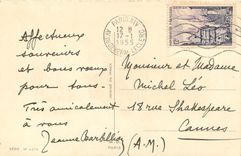 Affectueux
souvenirs
et bons vœux
pour tous.
Très amicalement
à vous
Jeanne
12 H
17-5
1955
Monsieur et Madame
Michel Léo
18 rue Shakespeare
Cannes
(A.M.)